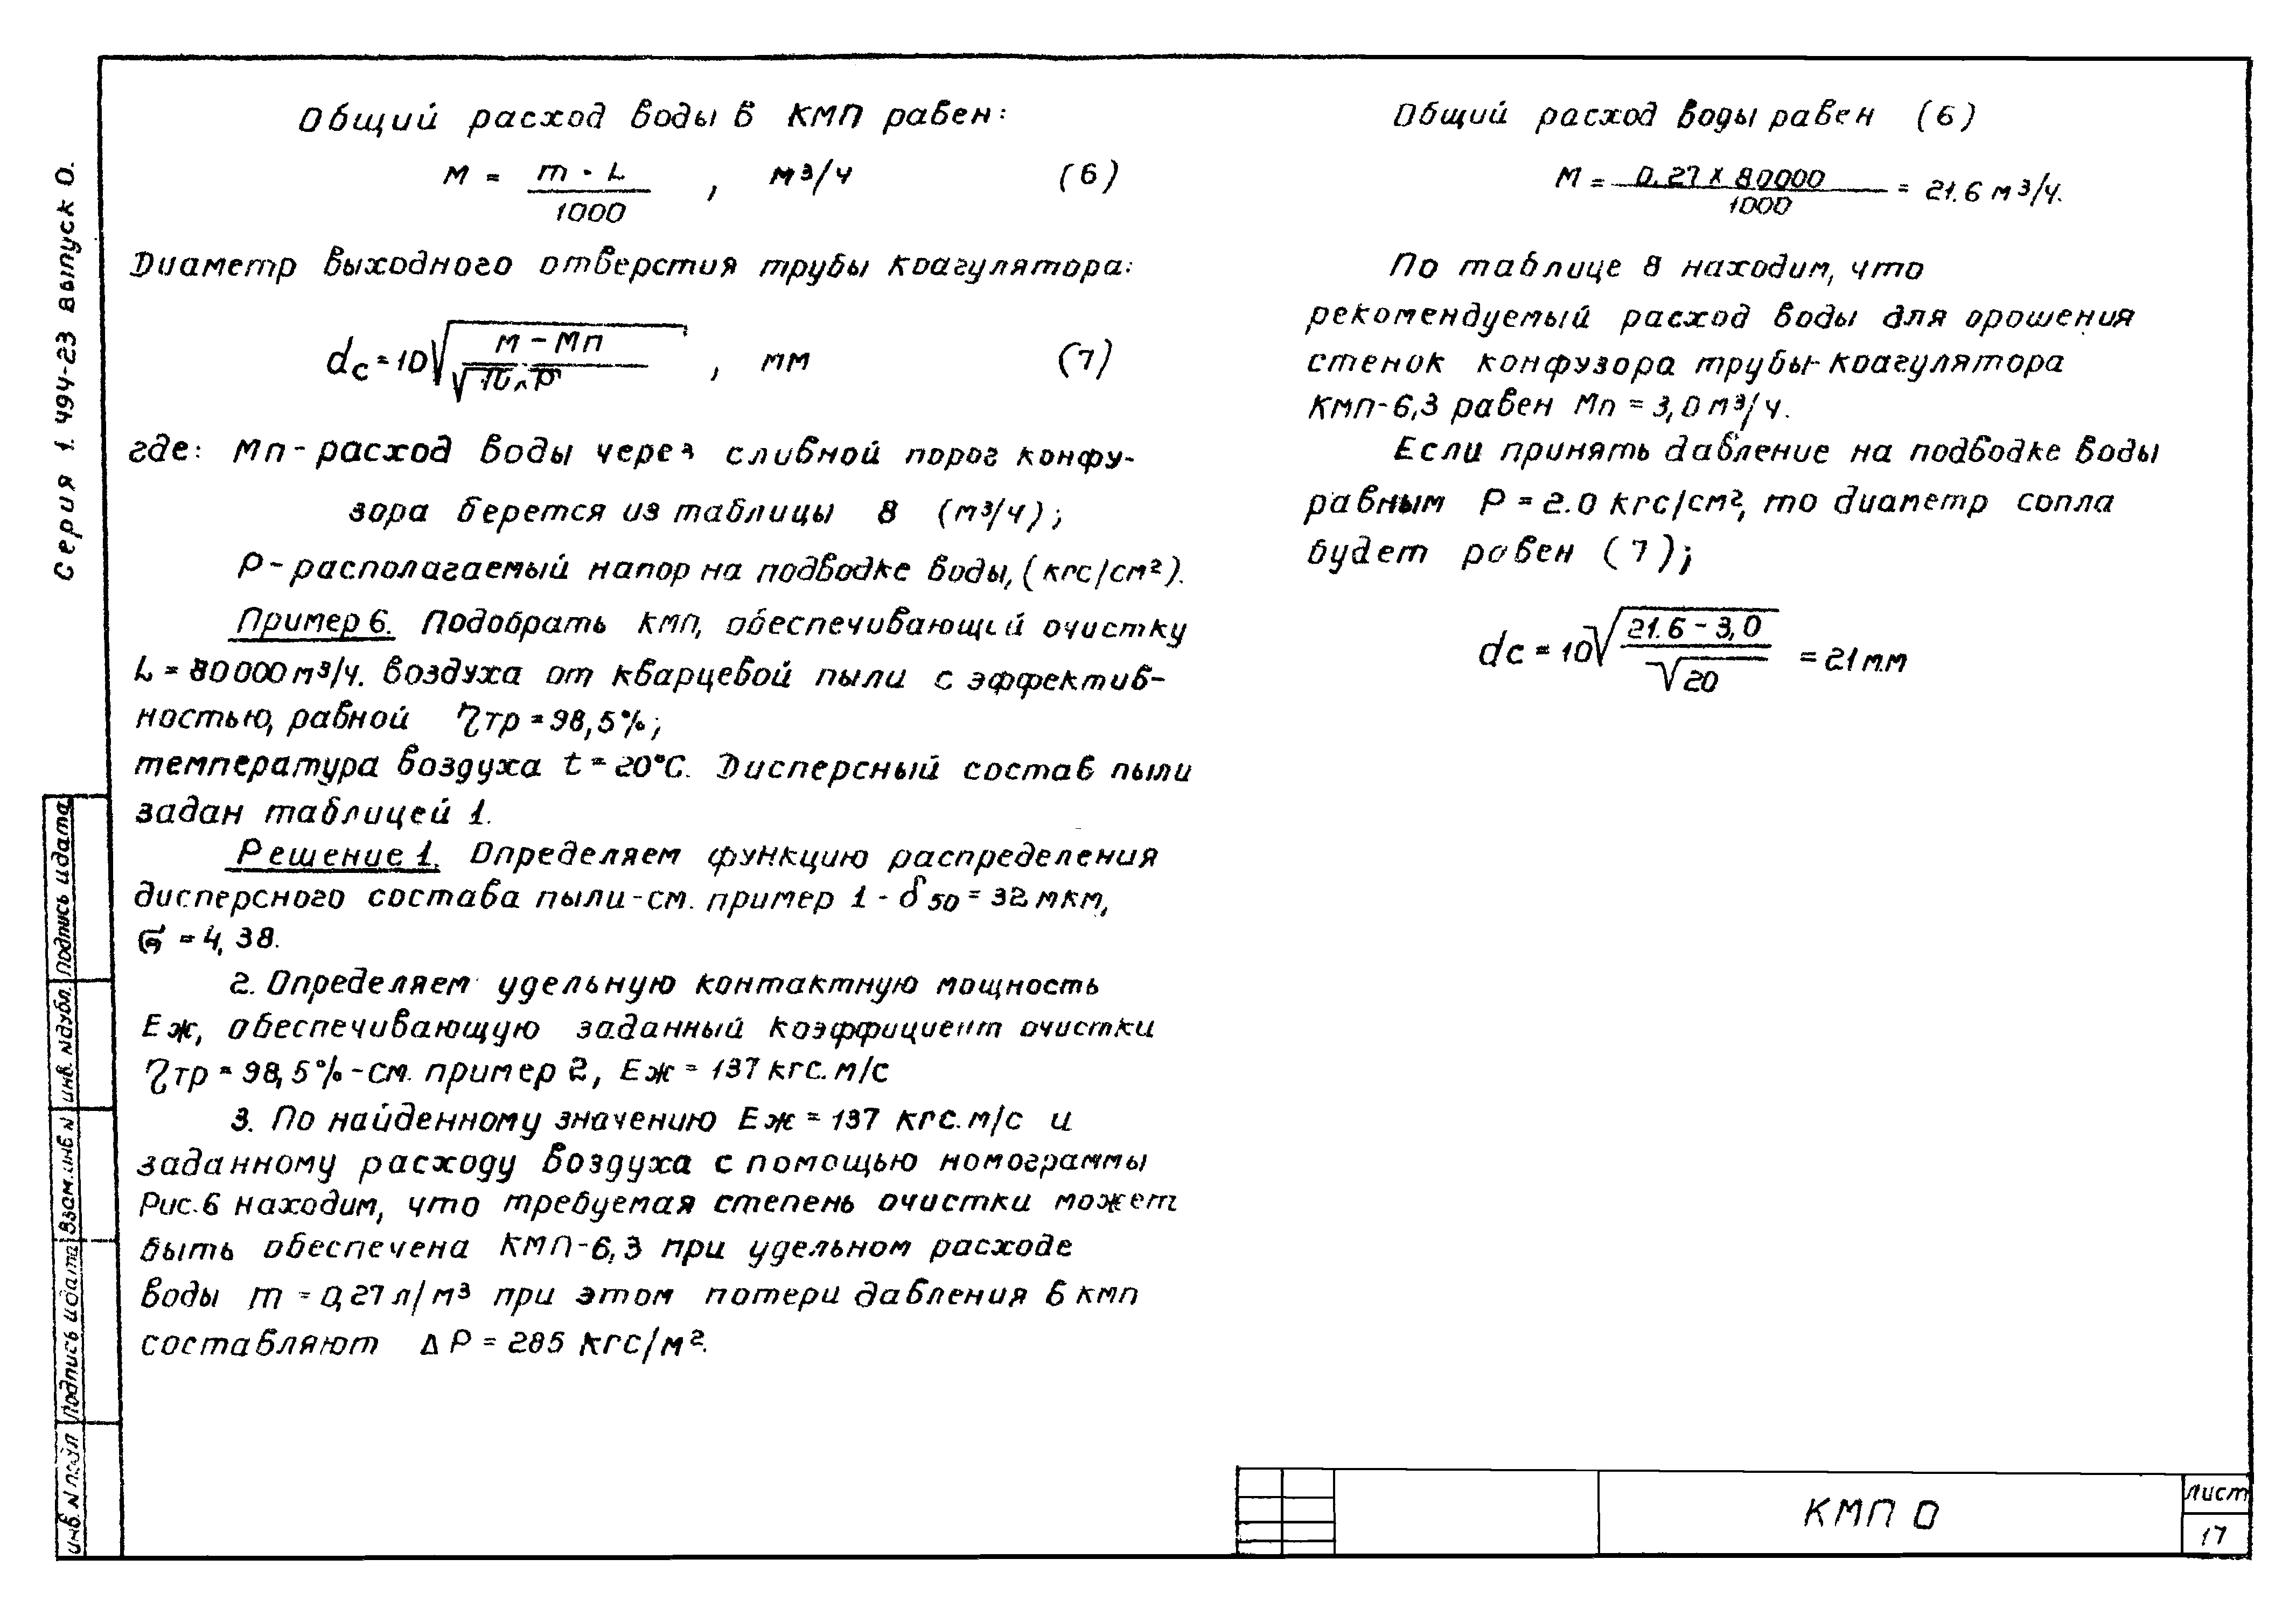 Серия 1.494-23 выпуск 0.
Общий расход воды в КМП равен:
М = m · L / 1000 , м³/ч (6)
Диаметр выходного отверстия трубы коагулятора:
dс = 10 √ М - Мп / √ , мм (7)
где: Мп - расход воды через сливной порог конфу-
зора берется из таблицы 8 (м³/ч);
Р - располагаемый напор на подводке воды, (кгс/см²).
Пример 6. Подобрать КМП, обеспечивающий очистку
L = 80000 м³/ч. воздуха от кварцевой пыли с эффектив-
ностью, равной ηтр = 98,5%;
температура воздуха t = 20°С. Дисперсный состав пыли
задан таблицей 1.
Решение 1. Определяем функцию распределения
дисперсного состава пыли - см. пример 1 - δ50 = 32 мкм,
σ = 4,38.
2. Определяем удельную контактную мощность
Еж, обеспечивающую заданный коэффициент очистки
ηтр = 98,5% - см. пример 2, Еж = 137 кгс.м/с
3. По найденному значению Еж = 137 кгс.м/с и
заданному расходу воздуха с помощью номограммы
Рис.6 находим, что требуемая степень очистки может
быть обеспечена КМП-6,3 при удельном расходе
воды m = 0,27 л/м³ при этом потери давления в КМП
составляют Δ Р = 285 кгс/м².
Общий расход воды равен (6)
М = 0.27 х 80000 / 1000 = 21.6 м³/ч.
По таблице 8 находим, что
рекомендуемый расход воды для орошения
стенок конфузора трубы-коагулятора
КМП-6,3 равен Мп = 3,0 м³/ч.
Если принять давление на подводке воды
равным Р = 2.0 кгс/см², то диаметр сопла
будет равен (7);
dс = 10 √ 21.6 - 3,0 / √20 = 21 мм
Подпись и дата
инв. N дубл.
Взам. инв N
Подпись и дата
инв. N подл
КМП 0
Лист
17